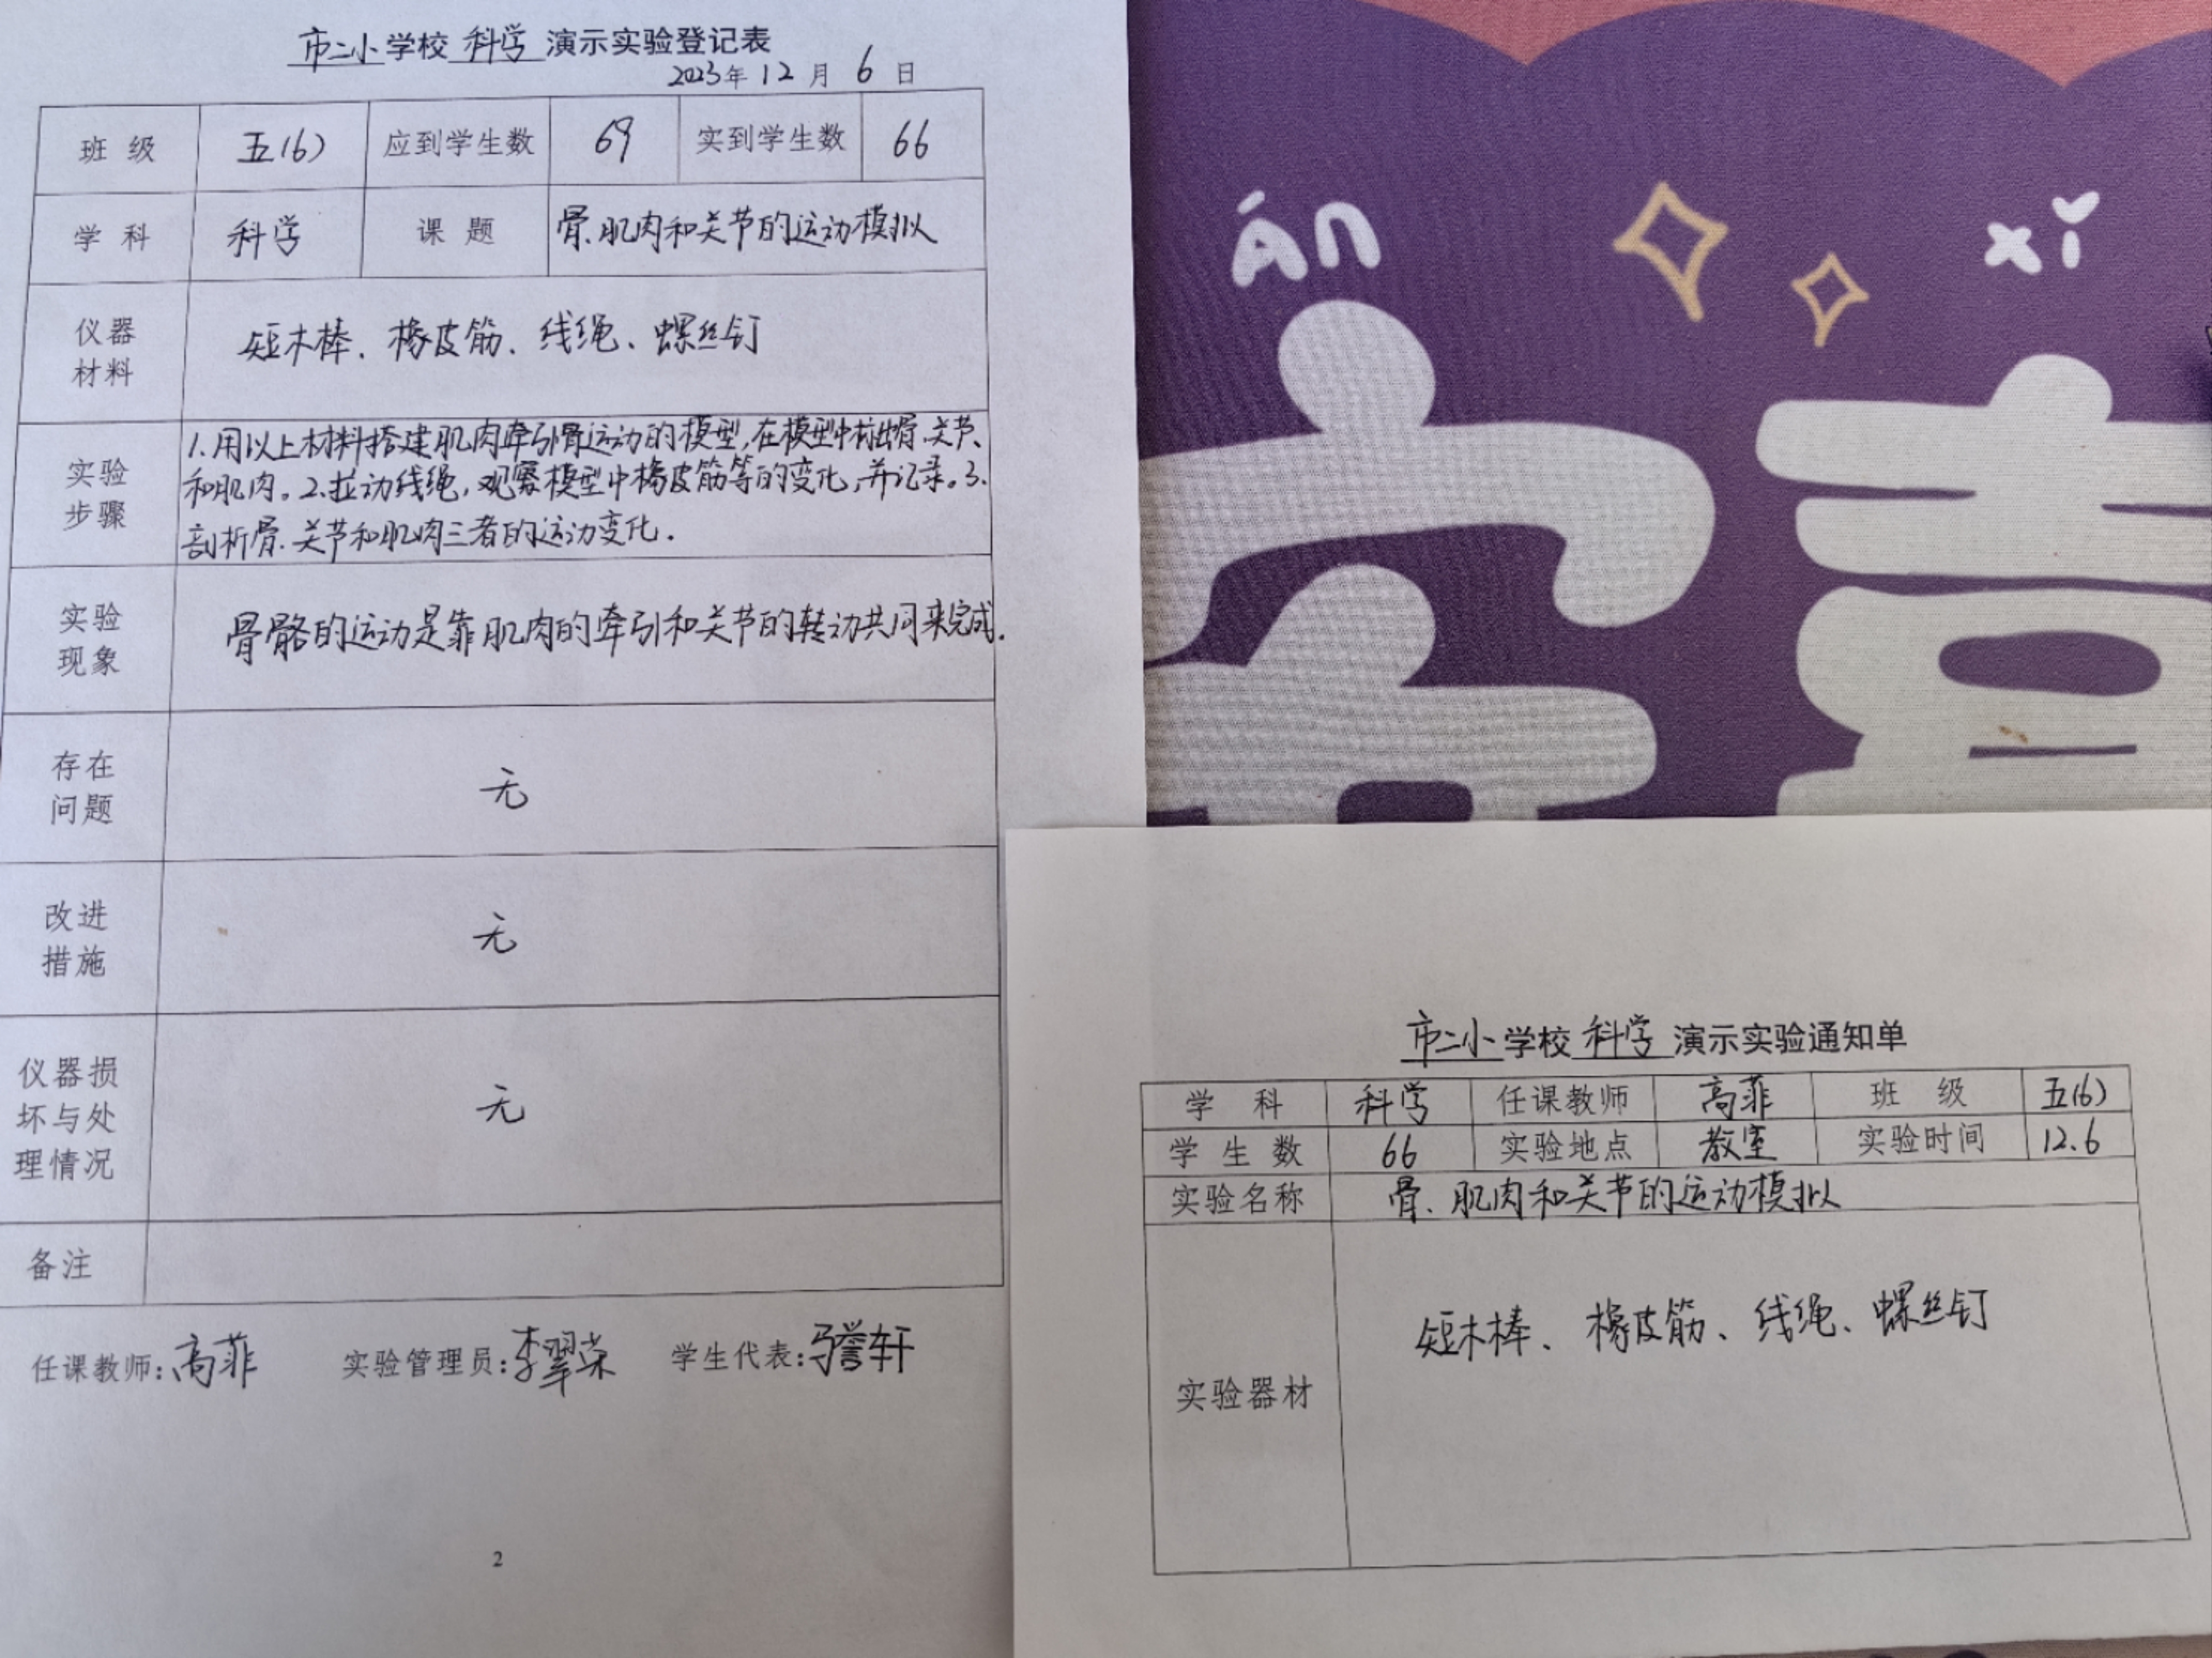 市二小学校 科学 演示实验登记表
2023年 12 月 6 日
班 级 五(6) 应到学生数 69 实到学生数 66
学 科 科学 课 题 骨.肌肉和关节的运动模拟
仪器
材料
短木棒、橡皮筋、线绳、螺丝钉
实验
步骤
1.用以上材料搭建肌肉牵引骨运动的模型,在模型中标出骨.关节、
和肌肉。2.拉动线绳,观察模型中橡皮筋等的变化,并记录。3.
剖析骨.关节和肌肉三者的运动变化.
实验
现象
骨骼的运动是靠肌肉的牵引和关节的转动共同来完成.
存在
问题
无
改进
措施
无
仪器损
坏与处
理情况
无
备注
任课教师:高菲 实验管理员:李翠荣 学生代表:马誉轩
2
án xǐ
市二小学校 科学 演示实验通知单
学 科 科学 任课教师 高菲 班 级 五(6)
学 生 数 66 实验地点 教室 实验时间 12.6
实验名称 骨.肌肉和关节的运动模拟
实验器材
短木棒、橡皮筋、线绳、螺丝钉